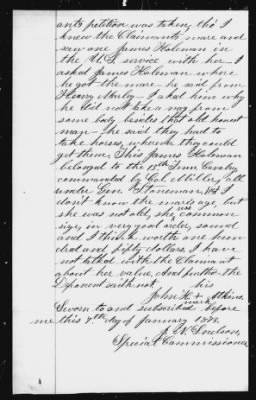 ants petition was taken, tho' I
knew the Claimants mare and
saw one James Holeman in
the U.S. service with her I
asked James Holeman where
he got the mare he said from
Henry I asked him why
he did not take a nag from
some body besides that old honest
man he said they had to
take horses, wherever they could
get them, This James Holeman
belonged to the Tenn Cavalry
commanded by Col Miller, all
under Gen. Stoneman, I
don't know the mare's age, but
she was not old, she was common
size, in very good order, sound
and I think worth one hun
dred and fifty dollars I have
not talked with the Claimant
about her value, And further the
Deponent saith not.
his
John H. + Atkins
mark
Sworn to and subscribed before
me this 7th day of January 1873.
Special Commissioner